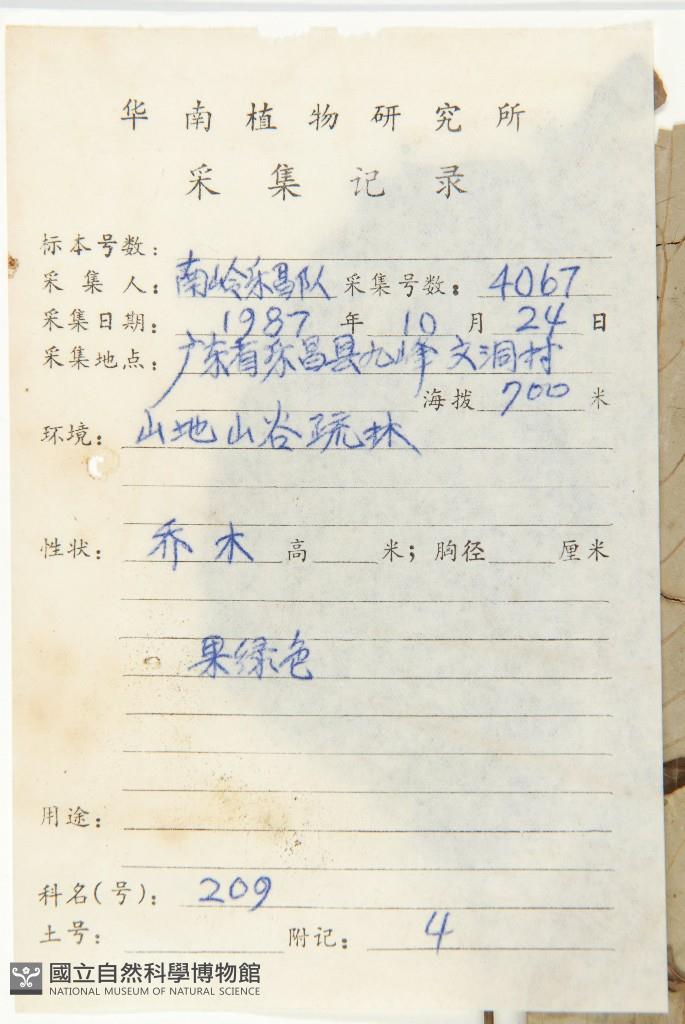 华南植物研究所
采集记录
标本号数：
采集人：南岭乐昌队 采集号数：4067
采集日期：1987年10月24日
采集地点：广东省乐昌县九峰文洞村
海拨700米
环境：山地山谷疏林
性状：乔木 高 米；胸径 厘米
果绿色
用途：
科名(号)：209
土号： 附记：4
國立自然科學博物館
NATIONAL MUSEUM OF NATURAL SCIENCE